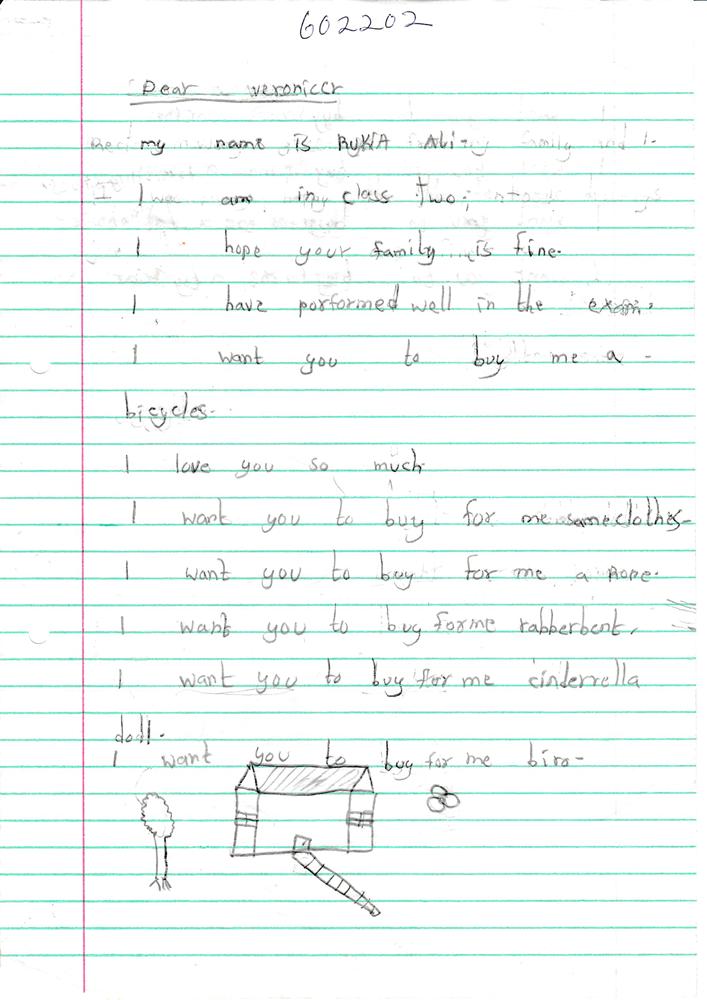 602202
Dear veroniccr
my name is RyKIA Ali-
I am in class two;
I hope your family is fine.
I have porformed well in the exam.
I want you to buy me a -
bicycles.
I love you so much
I want you to buy for me same clothes-
I want you to buy for me a Rope.
I want you to buy forme rabberbent.
I want you to buy for me cinderrella
doll.
I want you to buy for me biro-